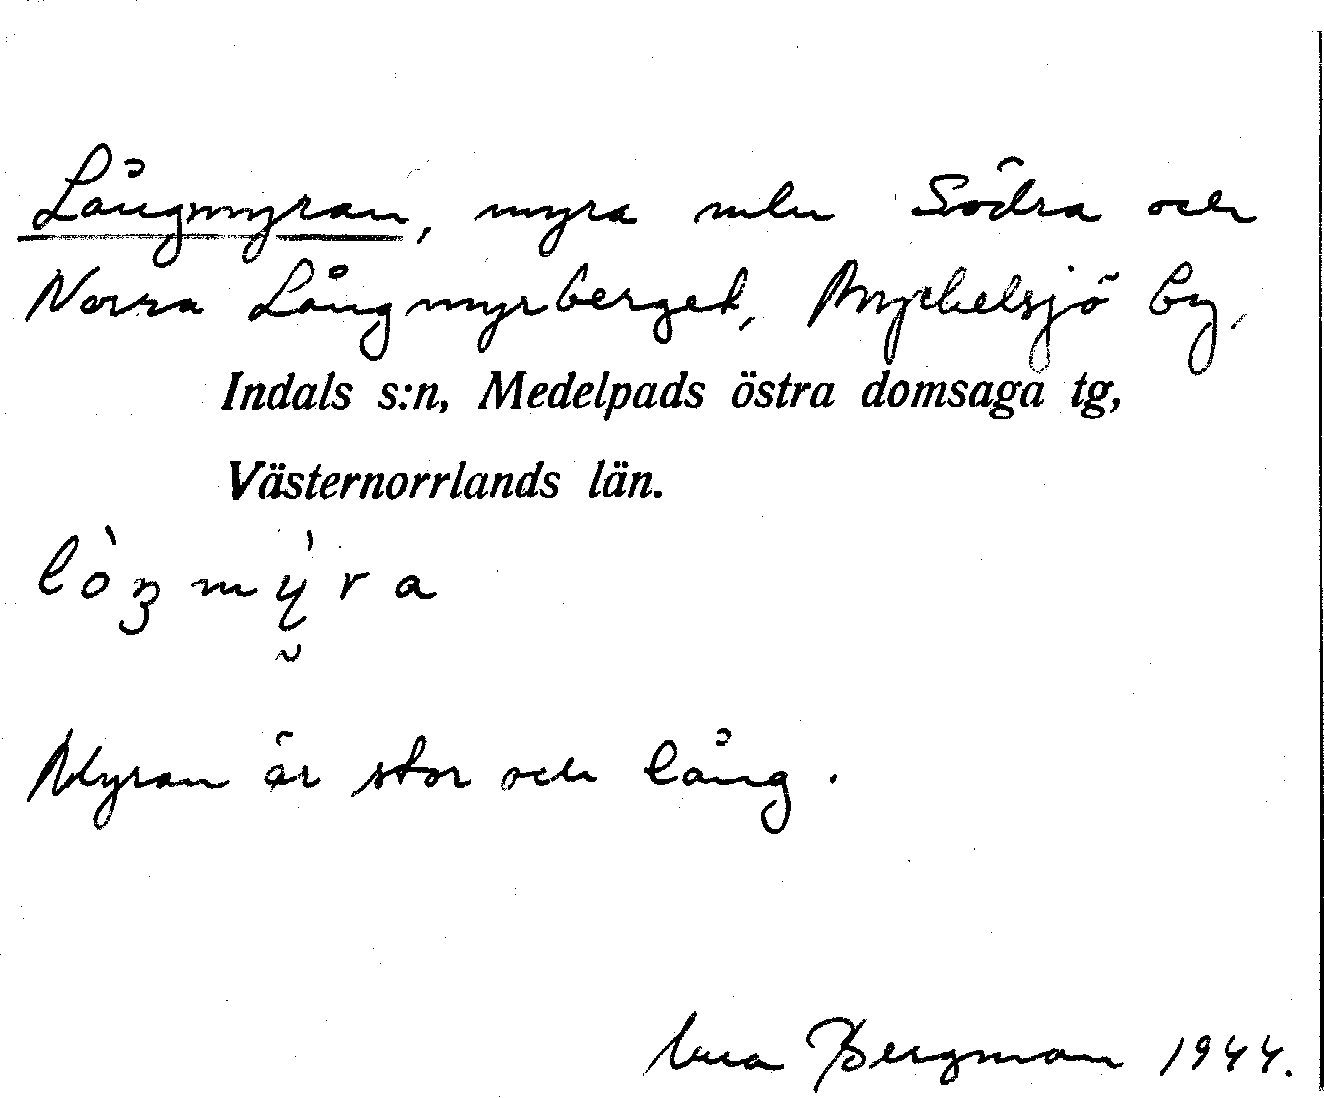 Långmyran, myra mln Södra och
Norra Långmyrberget, Myckelsjö by,
Indals s:n, Medelpads östra domsaga tg,
Västernorrlands län.
lòŋmy̆̀ra
Myran är stor och lång.
Bergman 1944.